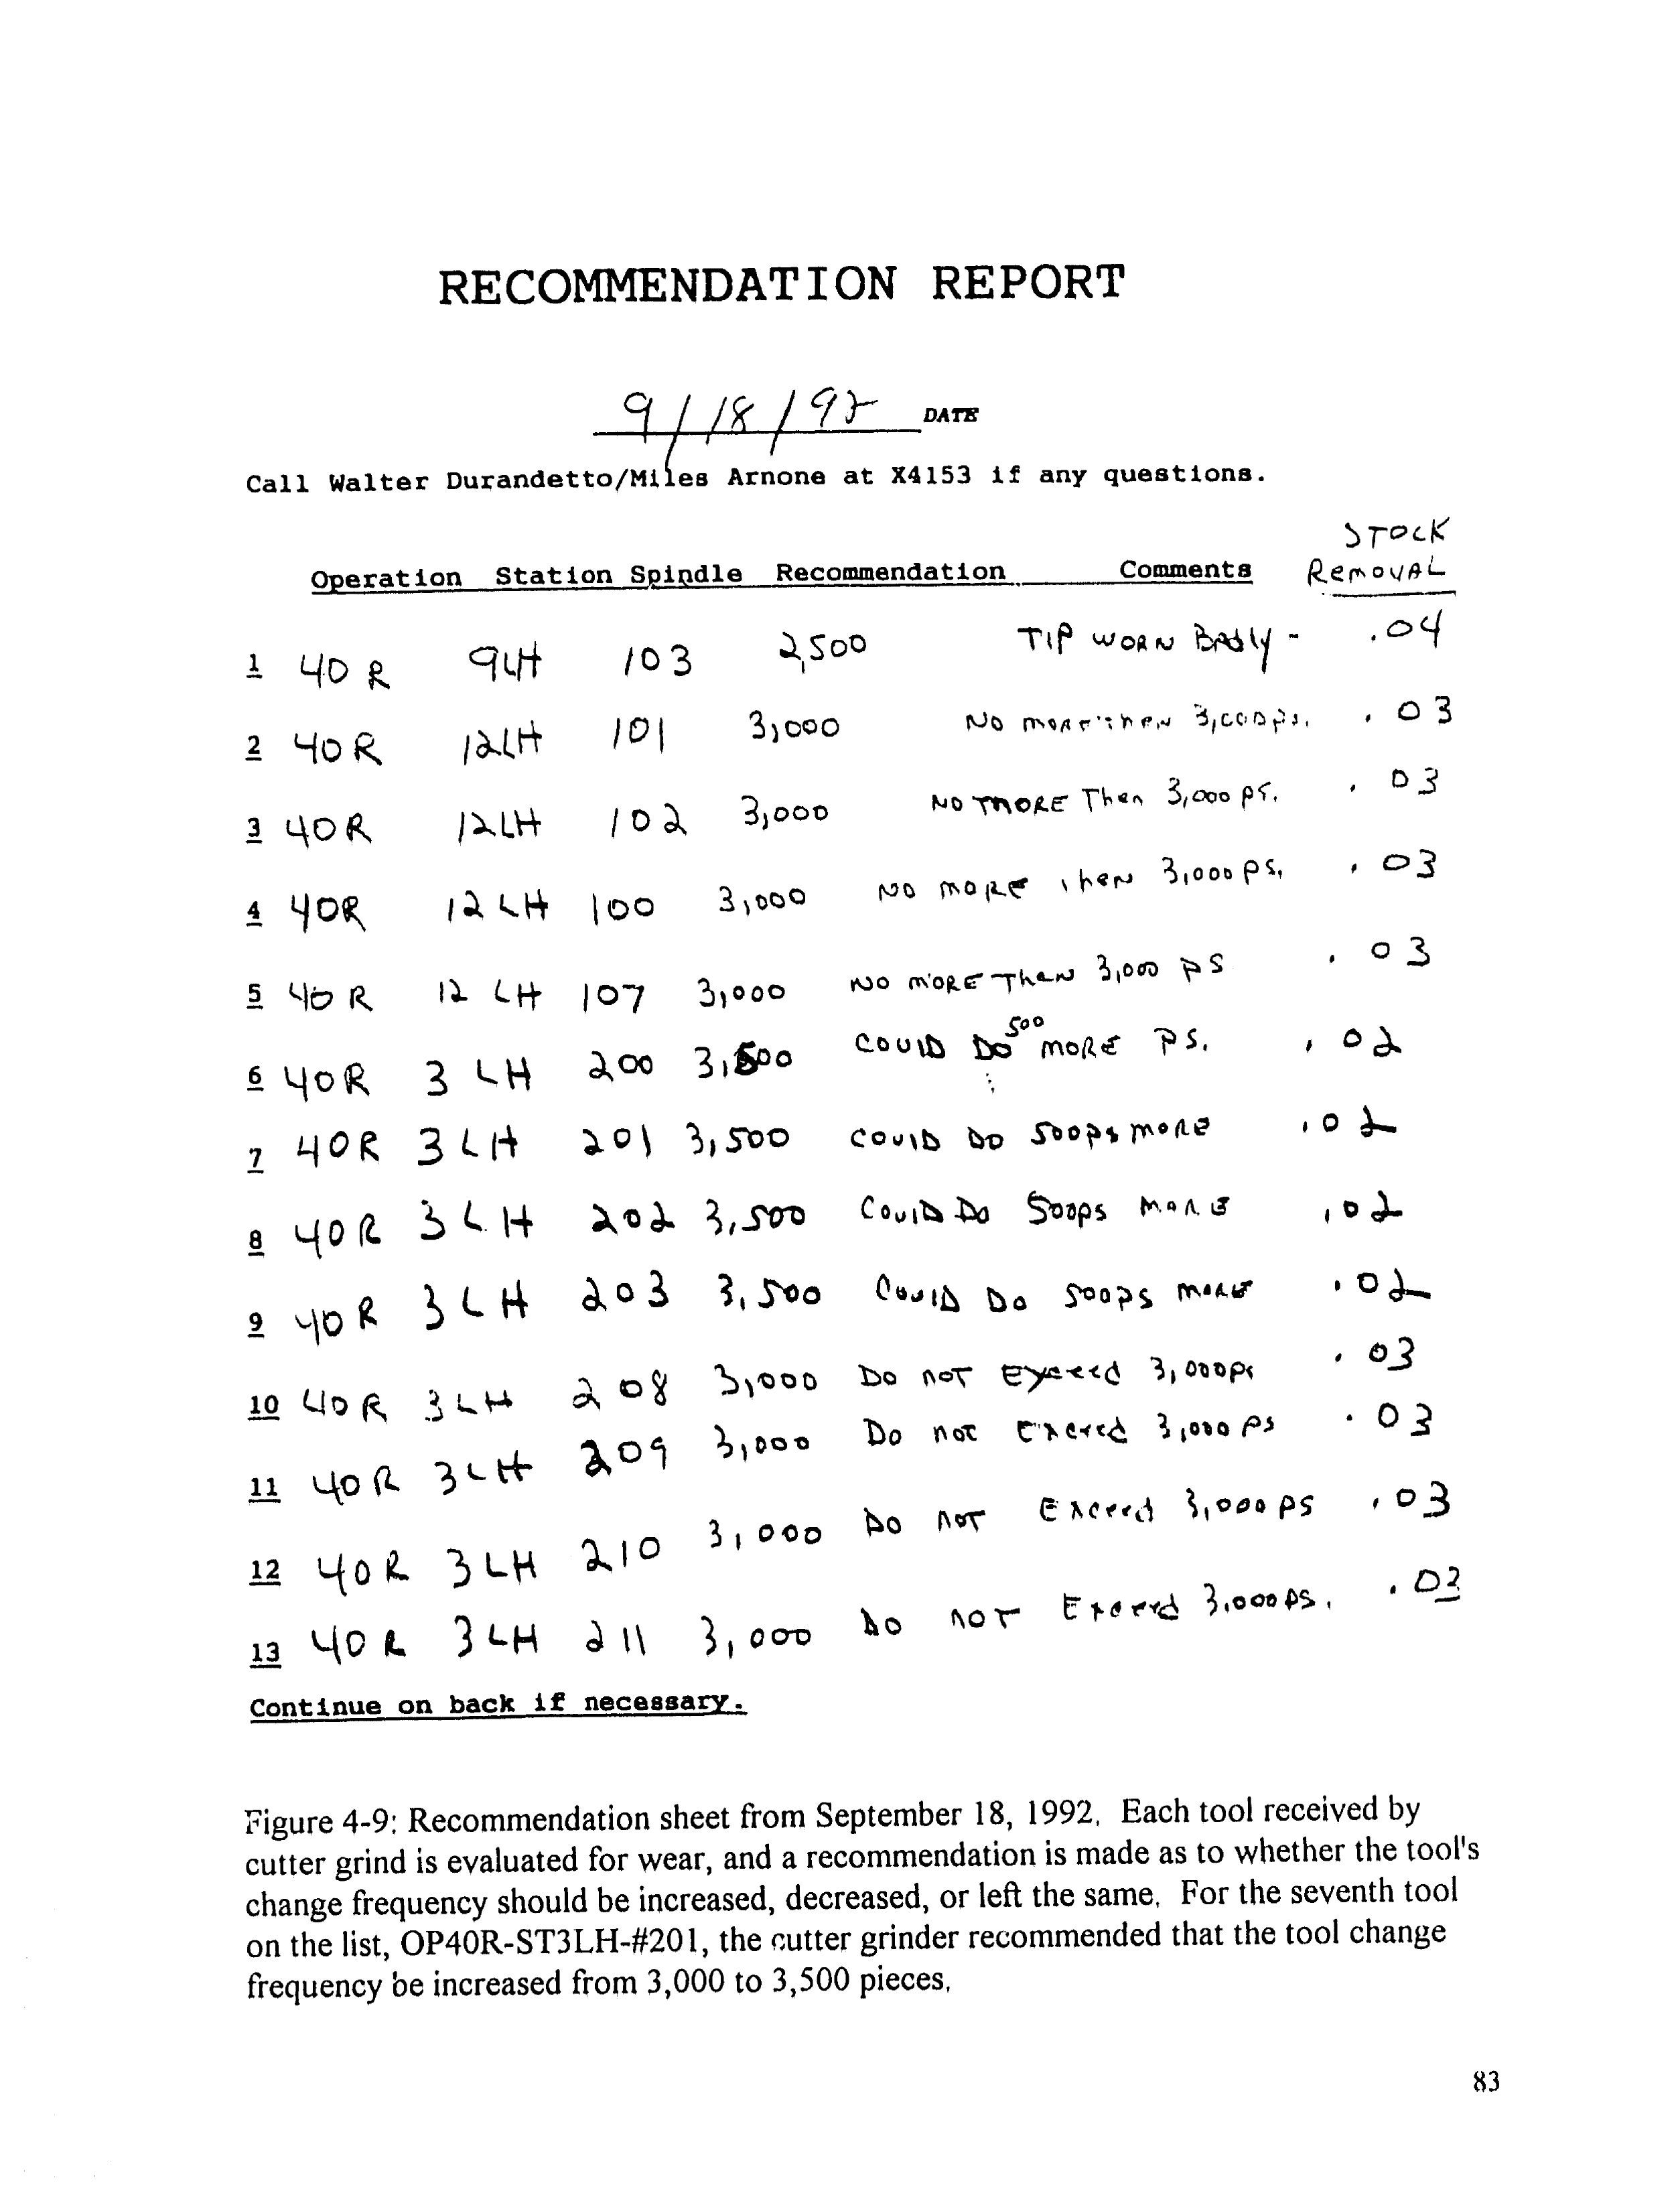 RECOMMENDATION REPORT
9/18/92 DATE
Call Walter Durandetto/Miles Arnone at X4153 if any questions.
STOCK
Operation Station Spindle Recommendation Comments REMOVAL
1 40R 9LH 103 2,500 TIP WORN BADLY - .04
2 40R 12LH 101 3,000 NO MORE THEN 3,000ps. .03
3 40R 12LH 102 3,000 NO MORE Then 3,000 ps. .03
4 40R 12LH 100 3,000 NO MORE THEN 3,000 ps. .03
5 40R 12LH 107 3,000 NO MORE THEN 3,000 PS .03
6 40R 3LH 200 3,500 COULD DO 500 MORE PS. .02
7 40R 3LH 201 3,500 COULD DO 500ps MORE .02
8 40R 3LH 202 3,500 COULD DO 500ps MORE .02
9 40R 3LH 203 3,500 COULD DO 500ps MORE .02
10 40R 3LH 208 3,000 DO NOT Exceed 3,000ps .03
11 40R 3LH 209 3,000 DO NOT Exceed 3,000 ps .03
12 40R 3LH 210 3,000 DO NOT Exceed 3,000 PS .03
13 40R 3LH 211 3,000 DO NOT Exceed 3,000 PS. .03
Continue on back if necessary.
Figure 4-9: Recommendation sheet from September 18, 1992. Each tool received by
cutter grind is evaluated for wear, and a recommendation is made as to whether the tool's
change frequency should be increased, decreased, or left the same. For the seventh tool
on the list, OP40R-ST3LH-#201, the cutter grinder recommended that the tool change
frequency be increased from 3,000 to 3,500 pieces.
83